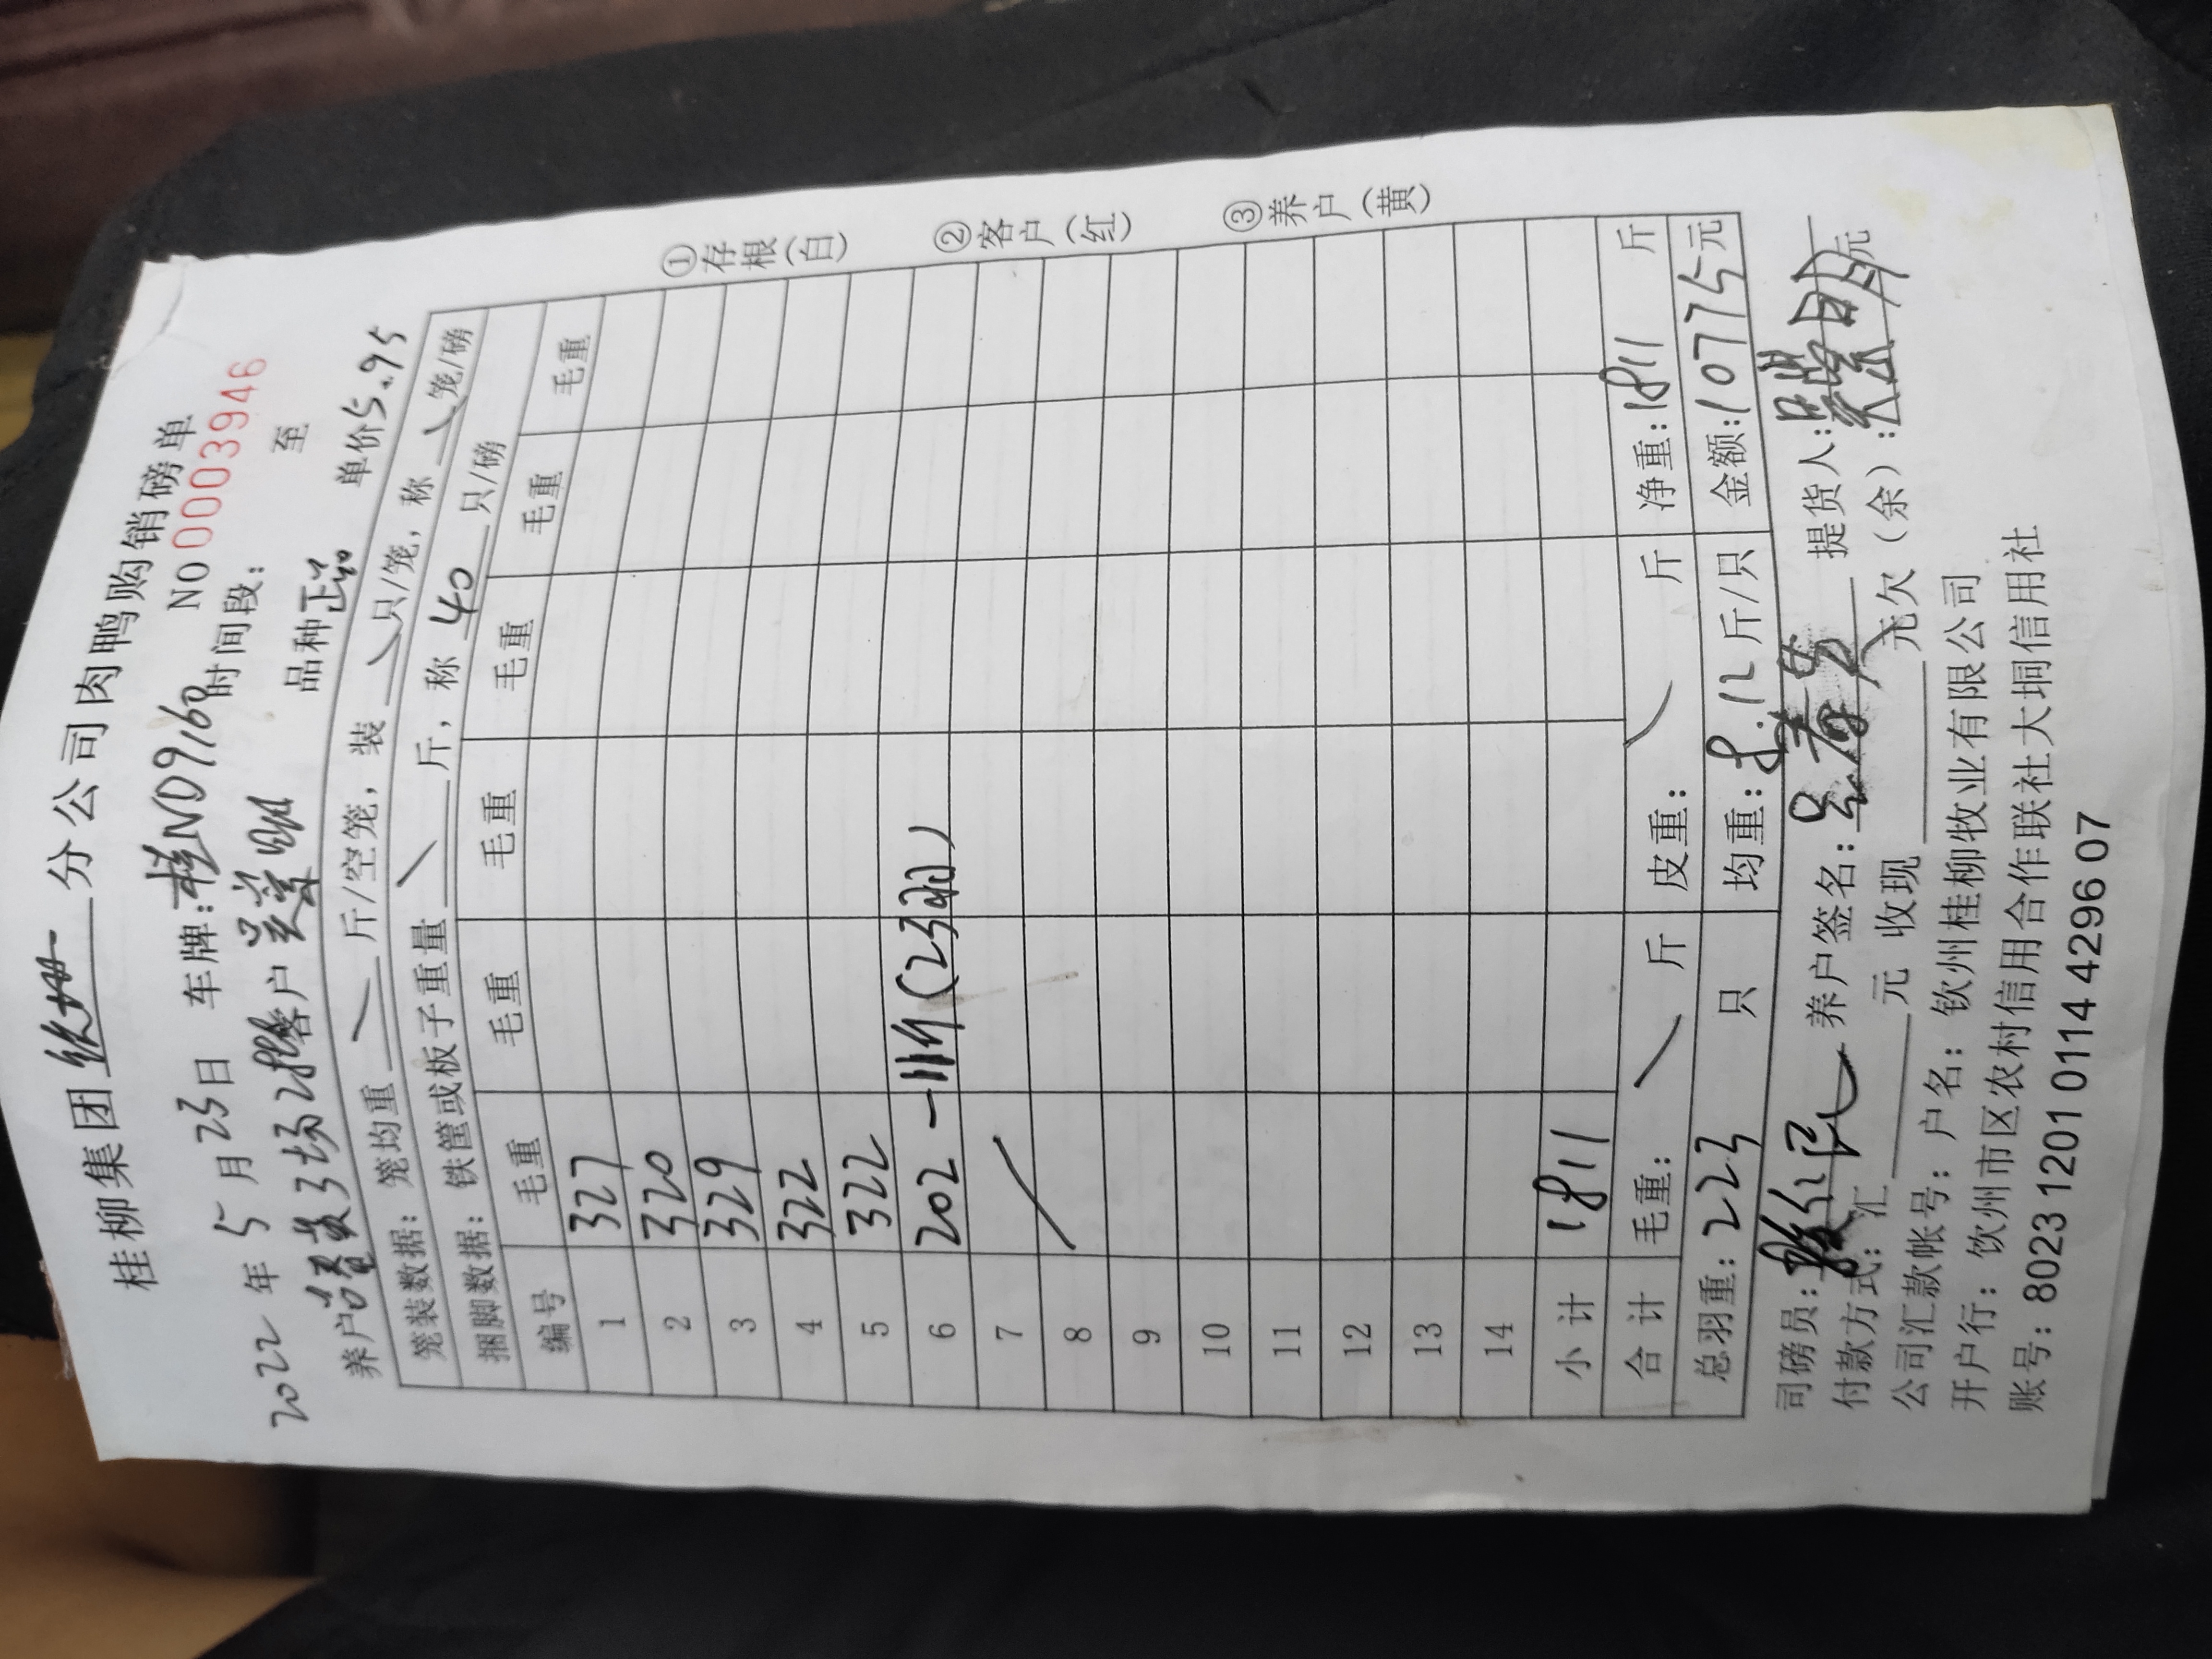 桂柳集团钦州分公司肉鸭购销磅单
2022年5月23日 车牌:桂ND9160 NO 00003946
时间段: 至
养户 3场2批 客户 吴 品种正品 单价5.95
笼装数据: 笼均重 \ 斤/空笼, 装 \ 只/笼, 称 \ 笼/磅
捆脚数据: 铁筐或板子重量 \ 斤, 称 40 只/磅
编号 毛重 毛重 毛重 毛重 毛重 毛重
1 327
2 320
3 329
4 322
5 322
6 202 -11斤(23羽)
7
8
9
10
11
12
13
14
小计 1811
合计 毛重: \ 斤 皮重: \ 斤 净重:1811 斤
总羽重:223 只 均重:8.12斤/只 金额:10775元
司磅员: 养户签名: 提货人:
付款方式: 汇 元 收现 元欠(余): 元
公司汇款帐号: 户名: 钦州桂柳牧业有限公司
开户行: 钦州市区农村信用合作联社大垌信用社
账号: 8023 1201 0114 4296 07
①存根(白)
②客户(红)
③养户(黄)